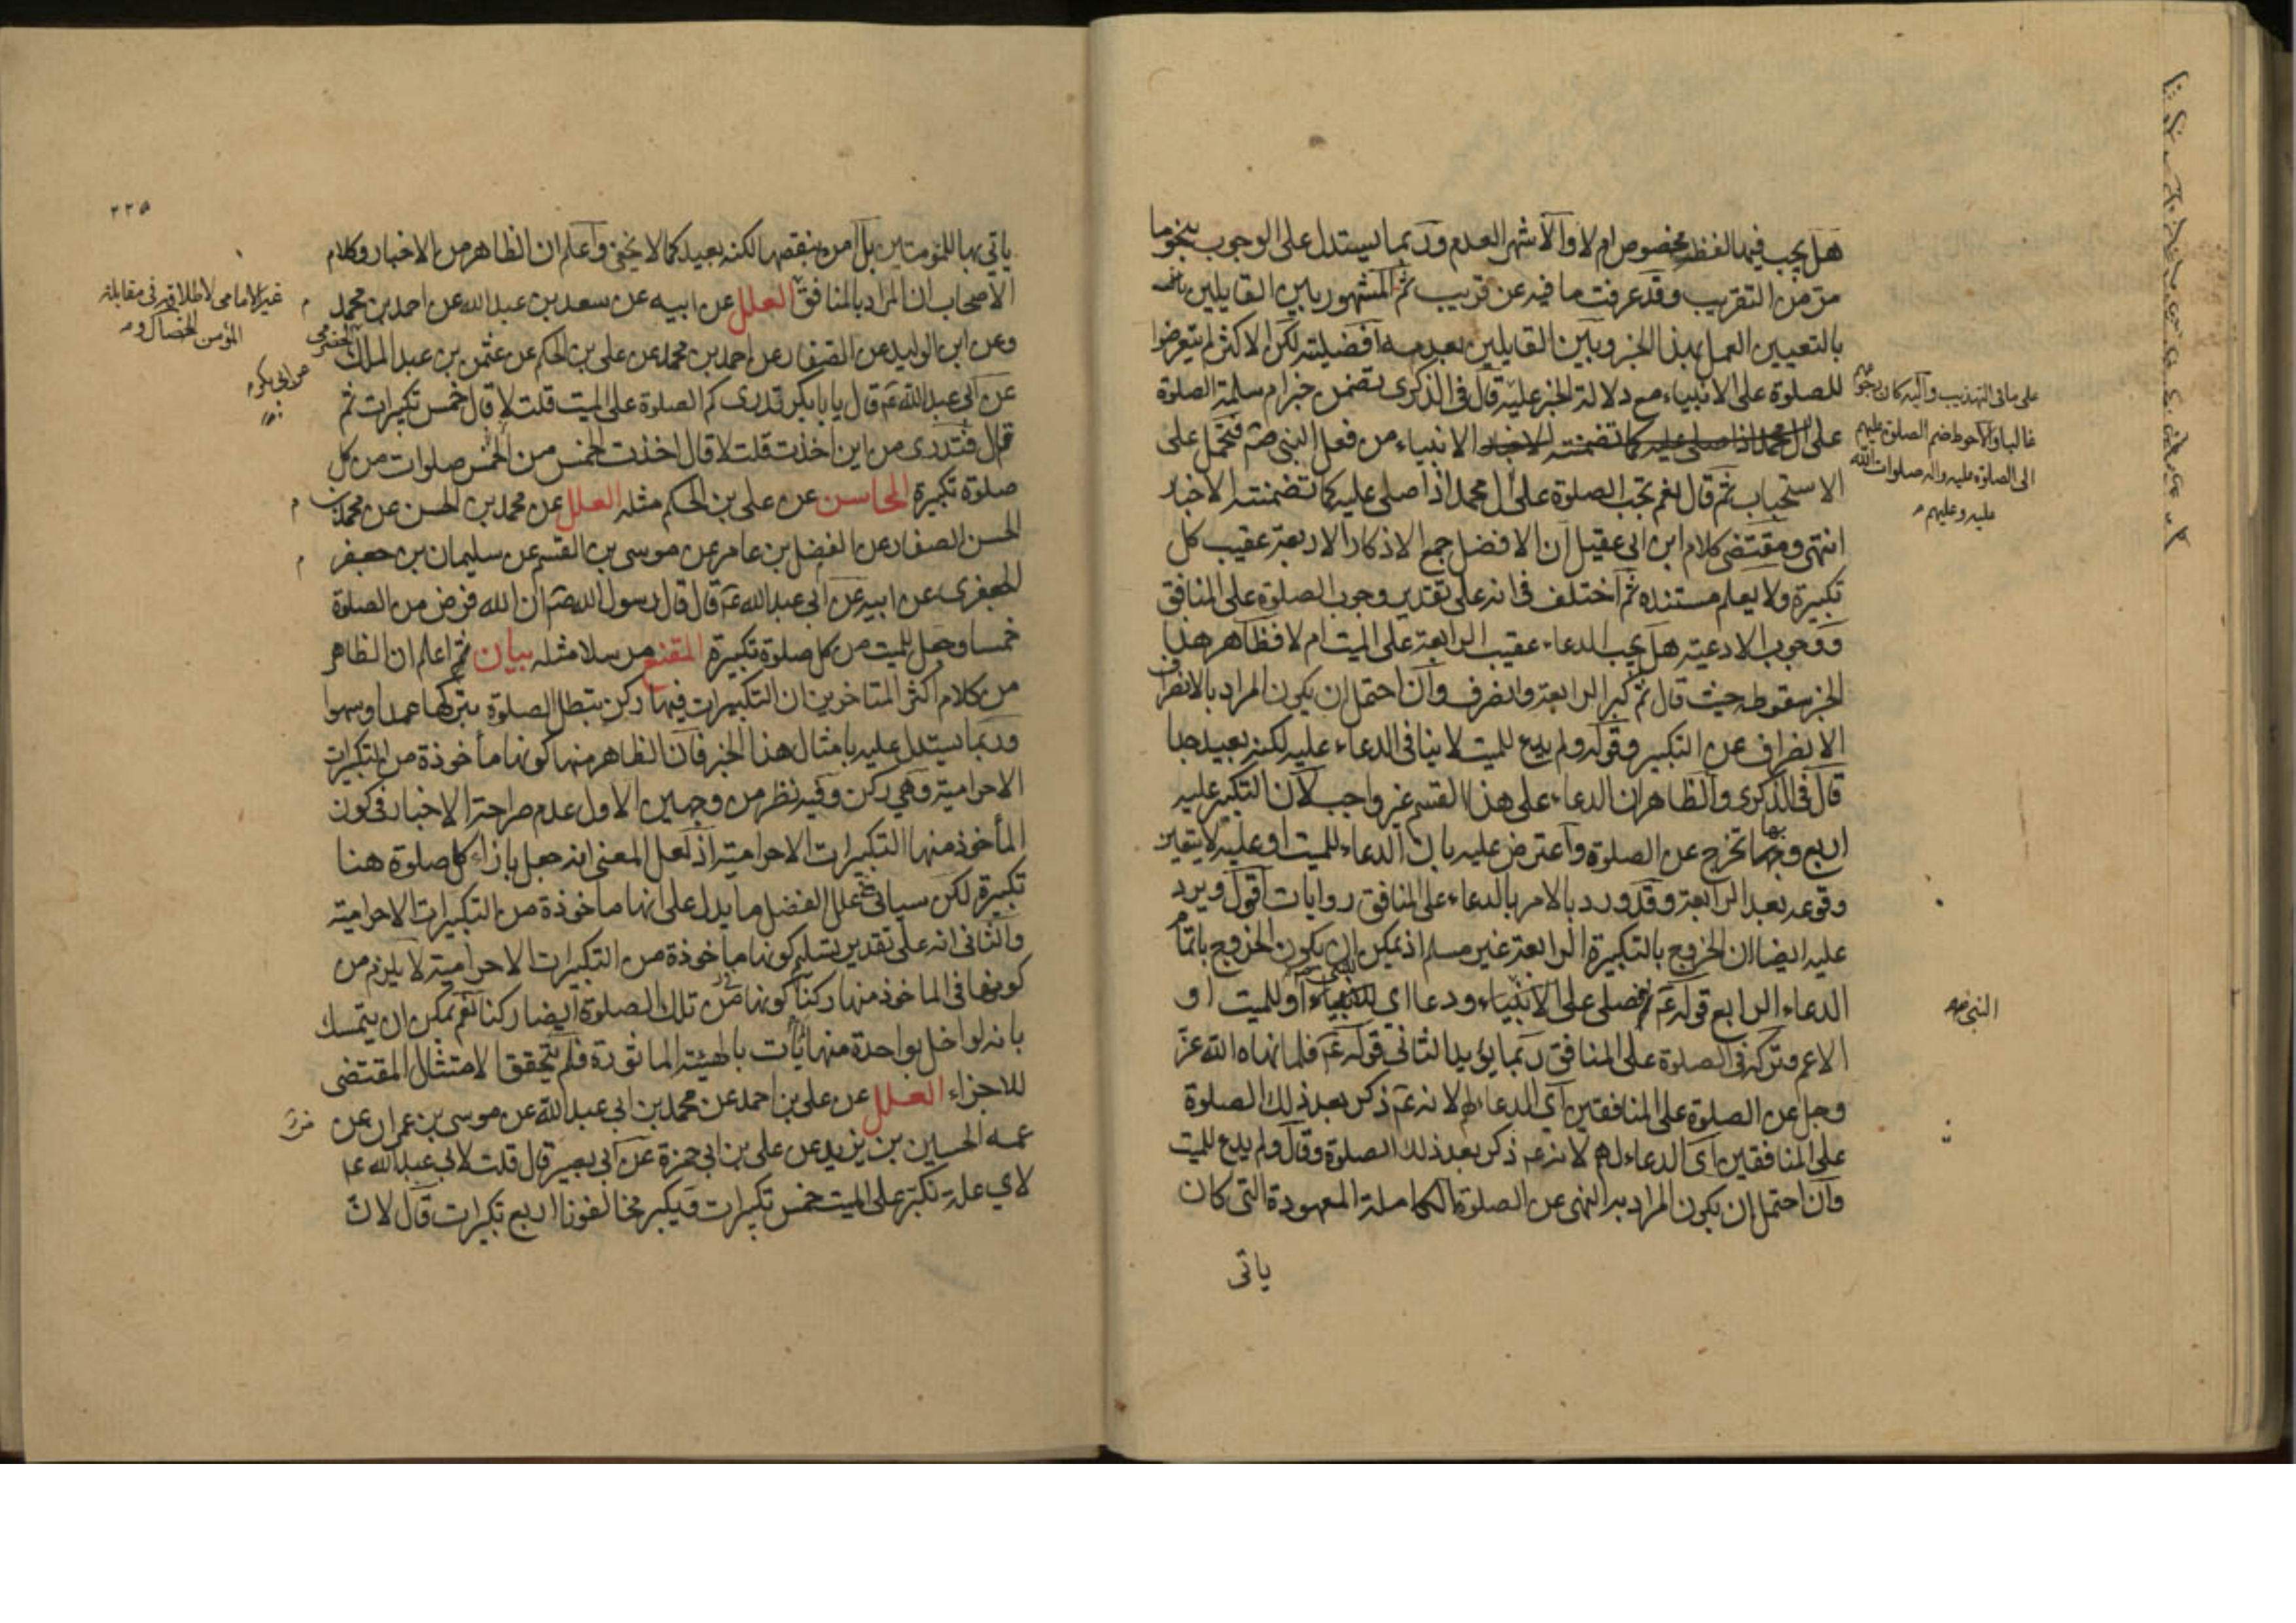 هل يجب فيها لفظ مخصوص ام لا والاشهر العدم وربما يستدل على الوجوب بنحو ما
مر من التقريب وقد عرفت ما فيه عن قريب ثم المشهور بين القايلين
بالتعيين العمل بهذا الخبر وبين القايلين بعدمه افضليته لكن الاكثر لم يتعرضوا
للصلوة على الانبياء مع دلالة الخبر عليه قال في الذكرى تضمن خبر ام سلمة الصلوة
على الانبياء من فعل النبي صم فتحمل على
الاستحباب ثم قال نعم تجب الصلوة على ال محمد اذا صلى عليه كما تضمنته الاخبار
انتهى ومقتضى كلام ابن ابي عقيل ان الافضل جمع الاذكار الاربعة عقيب كل
تكبيرة ولا يعلم مستنده ثم اختلف في انه على تقدير وجوب الصلوة على المنافق
ووجوب الادعية هل يجب الدعاء عقيب الرابعة على الميت ام لا فظاهر هذا
الخبر سقوطه حيث قال ثم كبر الرابعة وانصرف وان احتمل ان يكون المراد بالانصراف
الانصراف عن التكبير وقوله ولم يدع للميت لا ينافي الدعاء عليه لكنه بعيد جدا
قال في الذكرى والظاهر ان الدعاء على هذا القسم غير واجب لان التكبير عليه
اربع وبها تخرج عن الصلوة واعترض عليه بان الدعاء للميت او عليه لا يتعين
وقوعه بعد الرابعة وقد ورد بالامر بالدعاء على المنافق روايات اقول ويرد
عليه ايضا ان الخروج بالتكبيرة الرابعة غير مسلم اذ يمكن ان يكون الخروج باتمام
الدعاء الرابع قوله عم فصلى على الانبياء ودعا اي للنبي او للميت او
الاعم وتركه في الصلوة على المنافق ربما يؤيد الثاني قوله عم فلما نهاه الله عز
وجل عن الصلوة على المنافقين اي الدعاء لهم لانه عم ذكر بعد ذلك الصلوة
على المنافقين اي الدعاء لهم لانه عم ذكر بعد ذلك الصلوة وقال ولم يدع للميت
وان احتمل ان يكون المراد به النهي عن الصلوة الكاملة المعهودة التي كان
ياتي
على ما في التهذيب واليه كان
غالبا والاحوط ضم الصلوة عليهم
الى الصلوة عليه واله صلوات الله
عليه وعليهم
النبي
٢٢٥
ياتي بها للمؤمنين بل امره بنقصها لكنه بعيد كما لا يخفى واعلم ان الظاهر من الاخبار وكلام
الاصحاب ان المراد بالمنافق العلل عن ابيه عن سعد بن عبد الله عن احمد بن محمد
وعن ابن الوليد عن الصفار عن احمد بن محمد عن علي بن الحكم عن عثمن بن عبد الملك الحضرمي
عن ابي عبد الله عم قال يا با بكر تدرى كم الصلوة على الميت قلت لا قال خمس تكبيرات ثم
قال فتدرى من اين اخذت قلت لا قال اخذت الخمس من الخمس صلوات من كل
صلوة تكبيرة المحاسن عن علي بن الحكم مثله العلل عن محمد بن الحسن عن محمد بن
الحسن الصفار عن الفضل بن عامر عن موسى بن القسم عن سليمان بن جعفر
الجعفرى عن ابيه عن ابي عبد الله عم قال قال رسول الله صم ان الله فرض من الصلوة
خمسا وجعل للميت من كل صلوة تكبيرة المقنع مرسلا مثله بيان ثم اعلم ان الظاهر
من كلام اكثر المتاخرين ان التكبيرات فيها ركن تبطل الصلوة بتركها عمدا وسهوا
وربما يستدل عليه بامثال هذا الخبر فان الظاهر منها كونها مأخوذة من التكبيرات
الاحرامية وهي ركن وفيه نظر من وجهين الاول عدم صراحة الاخبار في كون
المأخوذ منها التكبيرات الاحرامية اذ لعل المعنى انه جعل بازاء كل صلوة هنا
تكبيرة لكن سياتي في علل الفضل ما يدل على انها ماخوذة من التكبيرات الاحرامية
والثاني انه على تقدير تسليم كونها ماخوذة من التكبيرات الاحرامية لا يلزم من
كونها في الماخوذ منها ركنا كونها في تلك الصلوة ايضا ركنا نعم يمكن ان يتمسك
بانه لو اخل بواحدة منها لم يأت بالهيئة الماثورة فلم يتحقق الامتثال المقتضى
للاجزاء العلل عن علي بن احمد عن محمد بن ابي عبد الله عن موسى بن عمران عن
عمه الحسين بن يزيد عن علي بن ابي حمزة عن ابي بصير قال قلت لابي عبد الله عم
لاي علة نكبر على الميت خمس تكبيرات ويكبر مخالفونا اربع تكبيرات قال لان
غير الامامي لاطلاقهم في مقابلة
المؤمن
عن ابي بكر